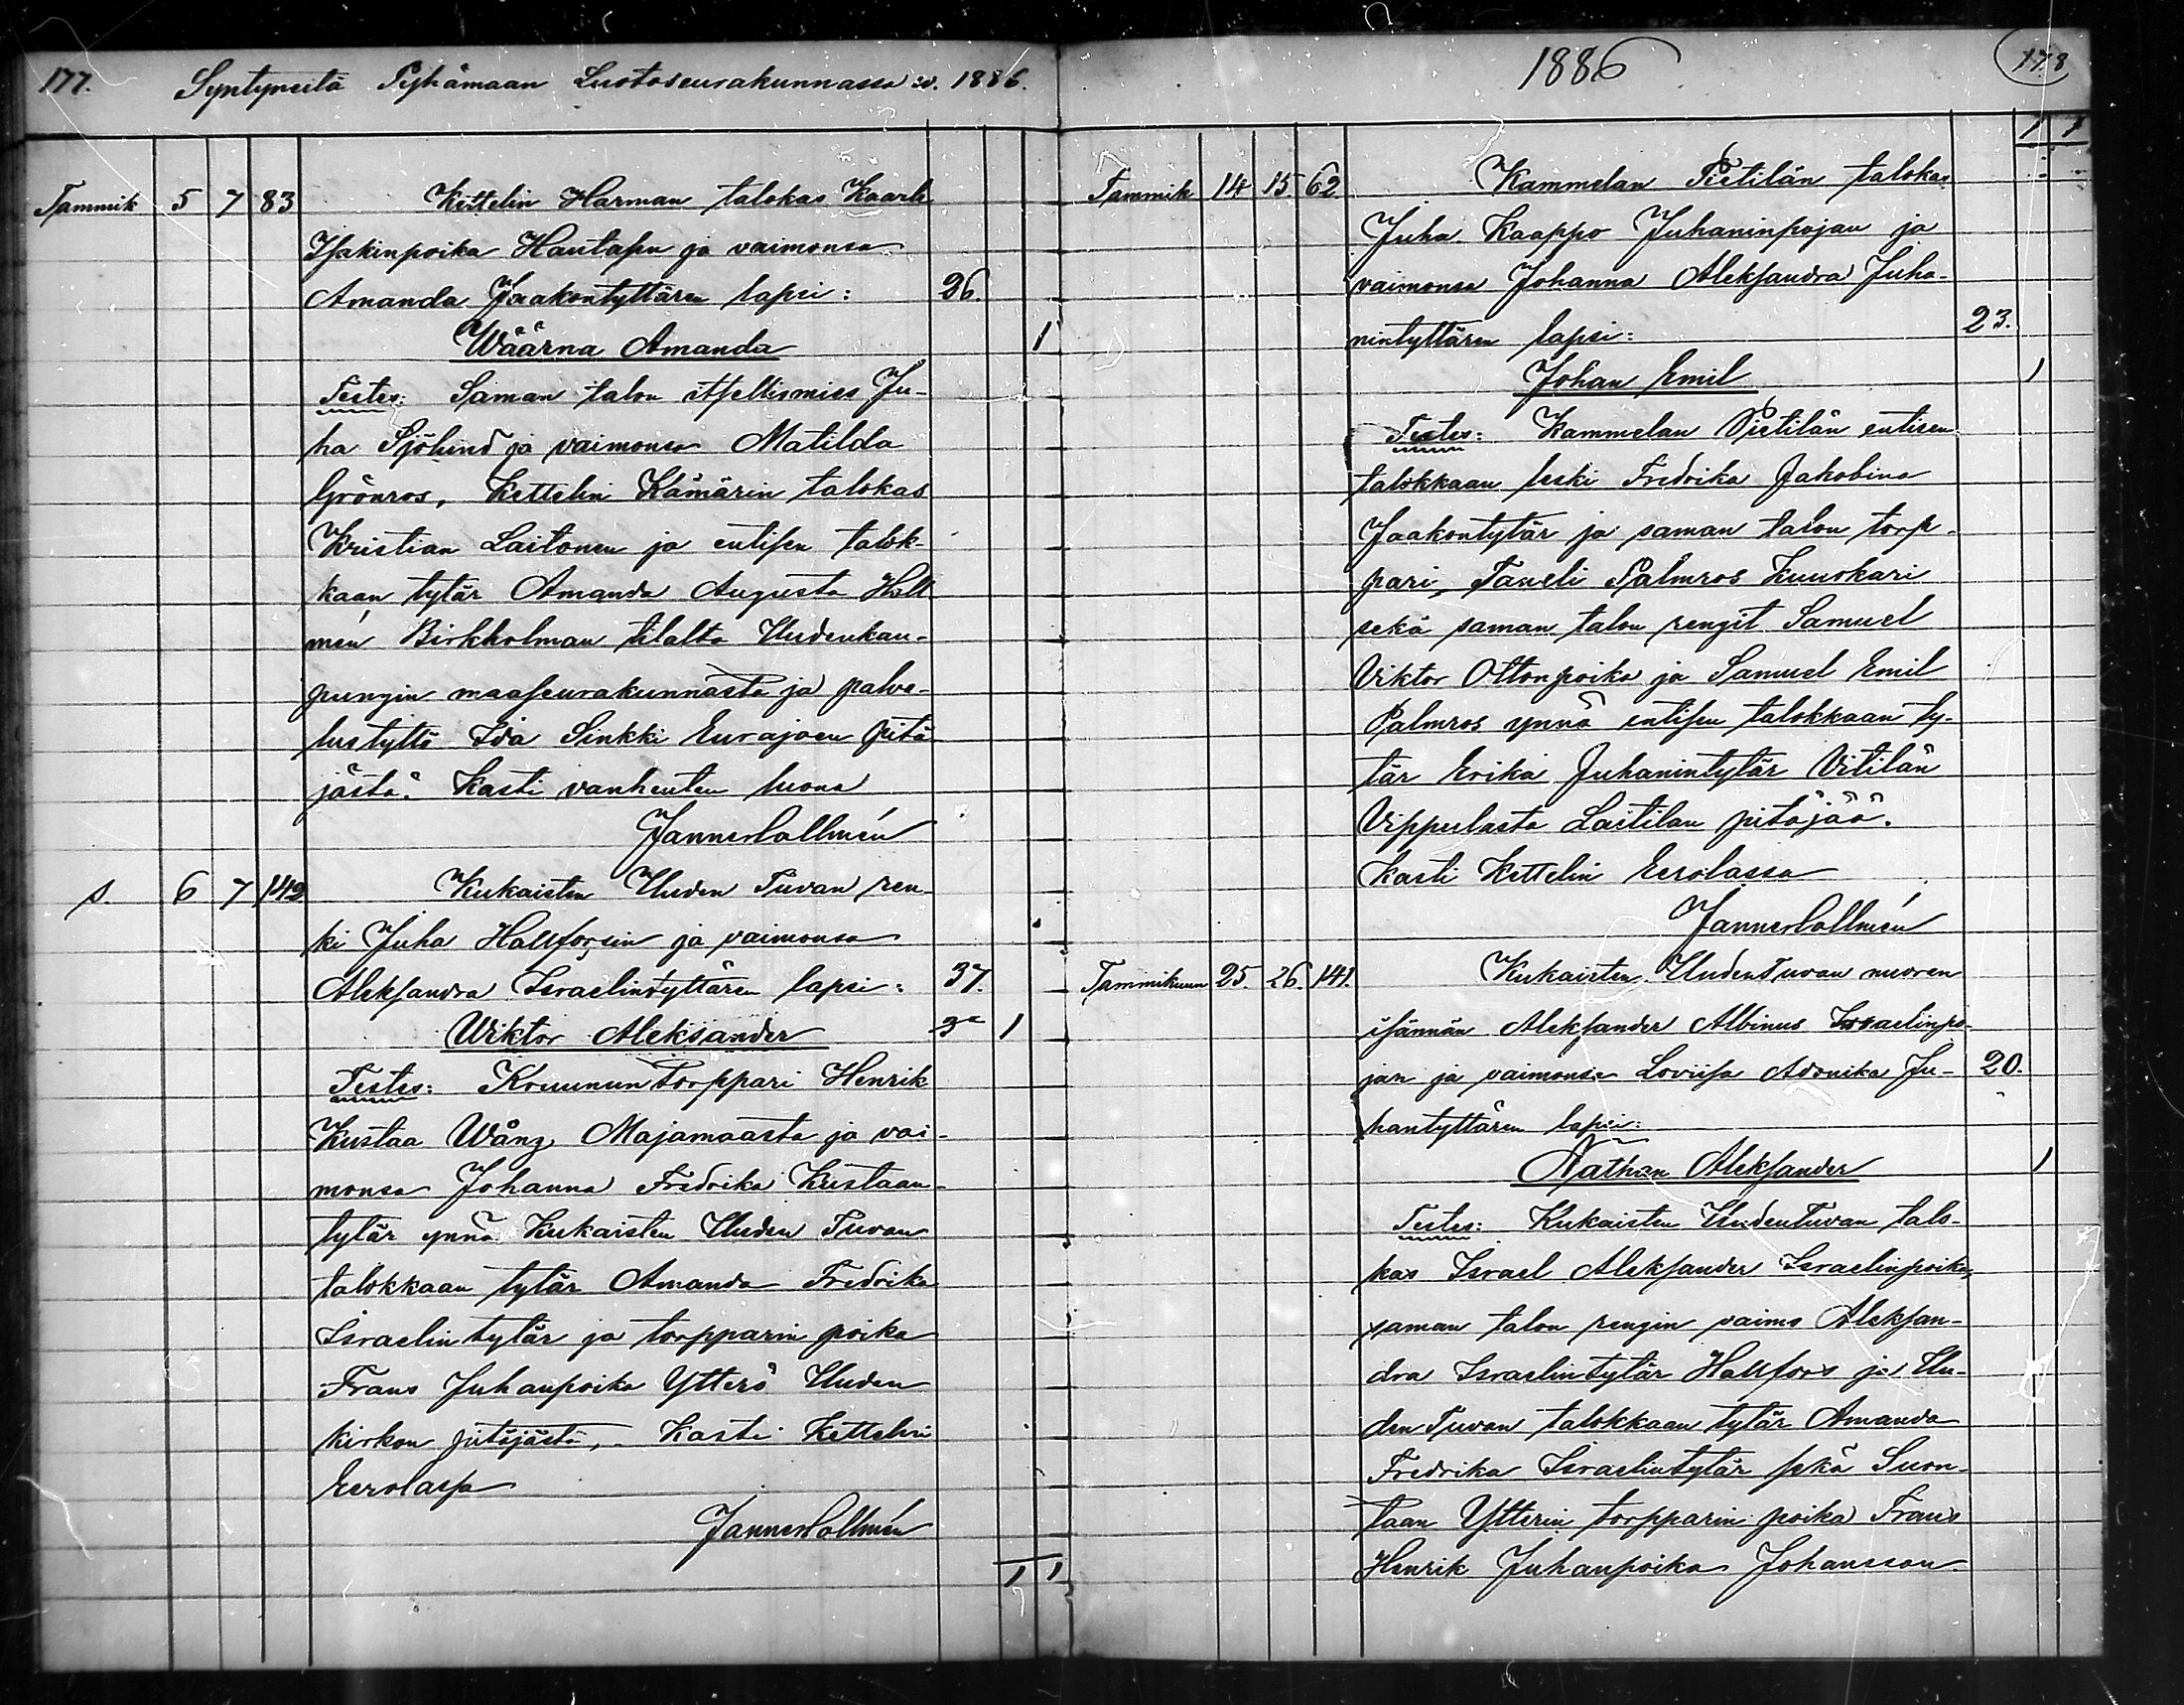 177. Syntyneitä Pyhämaan Luotoseurakunnassa v. 1886.
Tammik 5 7 83 Kettelin Harman talokas Kaarle
Isakinpoika Hautasen ja vaimonsa
Amanda Jaakontyttären lapsi: 26.
Wäärna Amanda 1
Testes: Saman talon itsellismies Ju-
ha Sjölund ja vaimonsa Matilda
Grönros, Kettelin Kämärin talokas
Kristian Laitonen ja entisen talok-
kaan tytär Amanda Augusta Hall-
mén Birkholman tilalta Uudenkau-
pungin maaseurakunnasta ja palve-
lustyttö Ida Sinkki Eurajoen pitä
jästä. Kasti vanhenten luona
Janne Collmén
s. 6 7 142 Kukaisten Uuden Tuvan ren-
ki Juha Hallforsin ja vaimonsa
Aleksandra Israelintyttären lapsi: 37.
Wiktor Aleksander 1
Testes: Kruunun torppari Henrik
Kustaa Wång Majamaasta ja vai-
monsa Johanna Fredrika Kustaan-
tytär ynnä Kukaisten Uuden Tuvan
talokkaan tytär Amanda Fredrika
Israelintytär ja torpparin poika
Frans Juhanpoika Ytterö Uuden
kirkon pitäjästä, Kasti Kettelin
Eerolassa
Janne Collmén
1 1
1886 178
1 1
Tammik 14 15. 62. Kammelan Pietilän talokas
Juha Kaappo Juhaninpojan ja
vaimonsa Johanna Aleksandra Juha-
nintyttären lapsi: 23.
Johan Emil 1
Testes: Kammelan Pietilän entisen
talokkaan leski Fredrika Jakobina
Jaakontytär ja saman talon torp-
pari, Taneli Palmros Kuuskari
sekä saman talon rengit Samuel
Viktor Ottonpoika ja Samuel Emil
Palmros ynnä entisen talokkaan ty-
tär Erika Juhanintytär Vitilän
Vippulasta Laitilan pitäjää.
Kasti Kettelin Eerolassa
Janne Collmén
Tammikuun 25. 26. 141. Kukaisten Uuden Tuvan nuoren
isännän Aleksander Albinus Israelinpo-
jan ja vaimonsa Loviisa Adonika Ju- 20.
hantyttären lapsi:
Nathan Aleksander 1
Testes: Kukaisten Uuden Tuvan talo-
kas Israel Aleksander Israelinpoika,
saman talon rengin vaimo Aleksan-
dra Israelintytär Hallfors ja Uu-
den Tuvan talokkaan tytär Amanda
Fredrika Israelintytär sekä Suon-
taan Ytterin torpparin poika Frans
Henrik Juhanpoika Johansson.